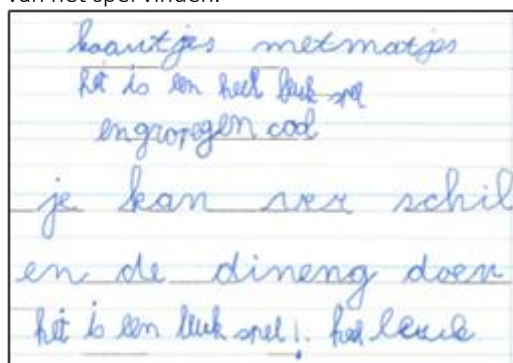 van het spel vinden.
kaartjes metmatjes
het is een heel leuk spel
en cool
je kan ver schil
en de dineng doen
het is een leuk spel! heel leuk